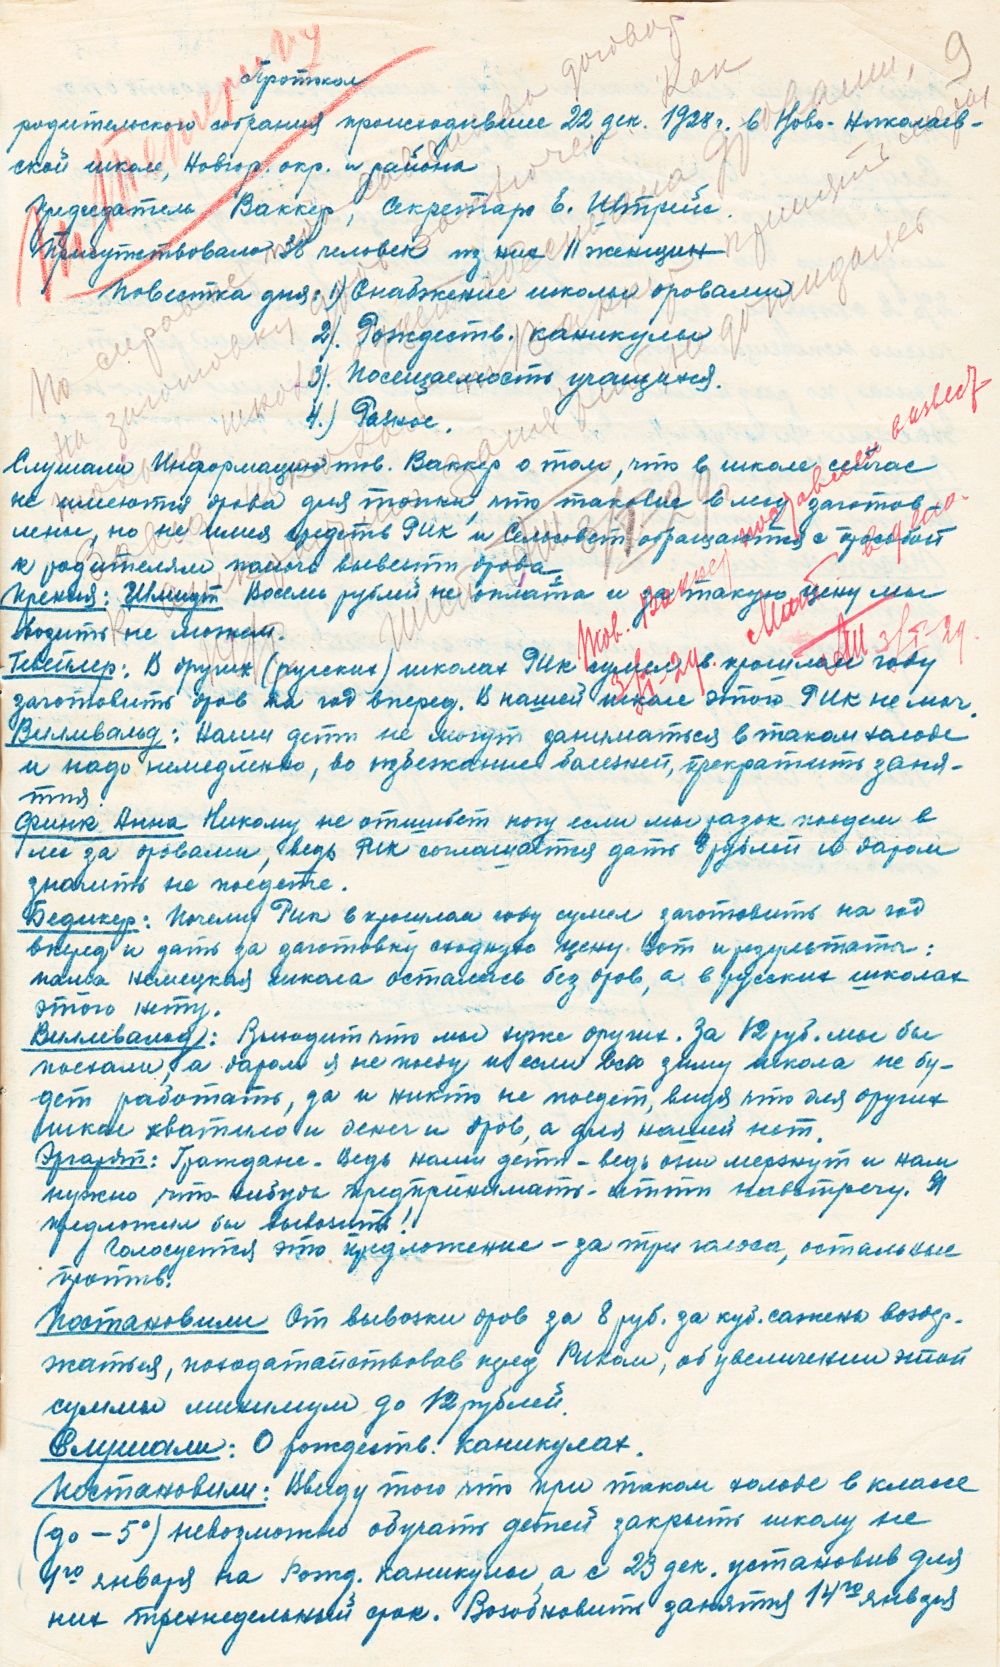 9
Протокол
родительского собрания происходившее 22 дек. 1928 г. в Ново-Николаев-
ской школе, Новгор. окр. и района
Председатель Ваккер, Секретарь Е. Штрейс.
Присутствовало 38 человек из них 11 женщин
Повестка дня: 1) Снабжение школы дровами
2). Рождеств. каникулы
3). Посещаемость учащихся.
4.) Разное.
Слушали Информацию тов. Ваккер о том, что в школе сейчас
не имеются дрова для топки, что таковые в лесу заготов-
лены, но не имея средств РИК и Сельсовет обращаются с просьбой
к родителям помочь вывезти дрова.
Прения: Шмидт Восемь рублей не оплата и за такую цену мы
возить не можем.
Гвейлер: В других (русских) школах РИК сумел в прошлом году
заготовить дров на год вперед. В нашей школе этого РИК не мог.
Вилливальд: Наши дети не могут заниматься в таком холоде
и надо немедленно, во избежание болезней, прекратить заня-
тия.
Финк Анна Никому не отшибет ногу если мы разок поедем в
лес за дровами, ведь РИК соглашается дать 8 рублей и даром
значить не поедете.
Бедикер: Почему РИК в прошлом году сумел заготовить на год
вперед и дать за заготовку сходную цену. Вот и результаты:
наша немецкая школа осталась без дров, а в русских школах
этого нету.
Вилливальд: Выходит что мы хуже других. За 12 руб. мы бы
поехали, а даром я не поеду и если всю зиму школа не бу-
дет работать, да и никто не поедет, видя что для других
школ хватило и денег и дров, а для нашей нет.
Эргардт: Граждане. Ведь наши дети - ведь они мерзнут и нам
нужно что нибудь предпринимать - итти навстречу. Я
предложил бы вывозить!
Голосуется это предложение - за три голоса, остальные
против.
Постановили От вывозки дров за 8 руб. за куб. сажень воздер-
жаться, походатайствовав пред Риком, об увеличении этой
суммы минимум до 12 рублей.
Слушали: О рождеств. каникулах.
Постановили: Ввиду того что при таком холоде в классе
(до - 5°) невозможно обучать детей закрыть школу не
1го января на Рожд. каникулы, а с 23 дек. установив для
них трехнедельный срок. Возобновить занятия 14го января
Тов. Ваккер поставлен в известн
3/I-29.
3/I-29